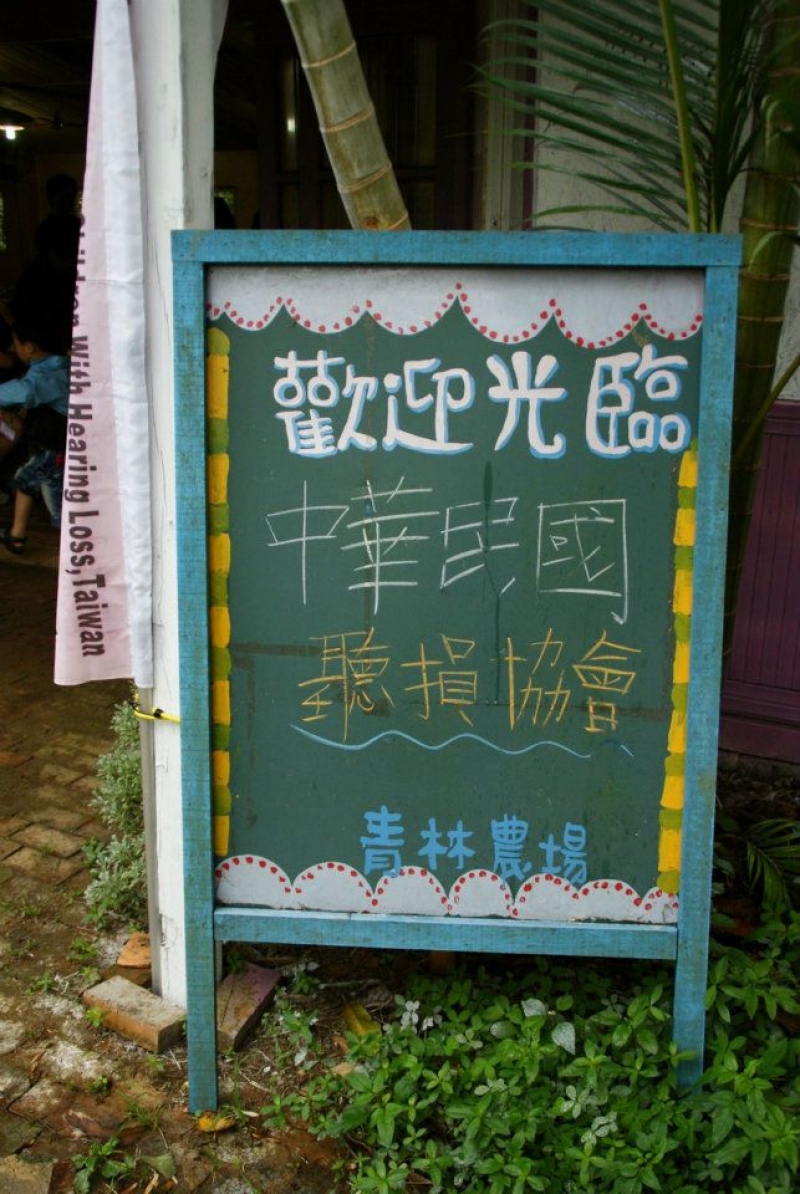 歡迎光臨
中華民國
聽損協會
青林農場
With Hearing Loss,Taiwan